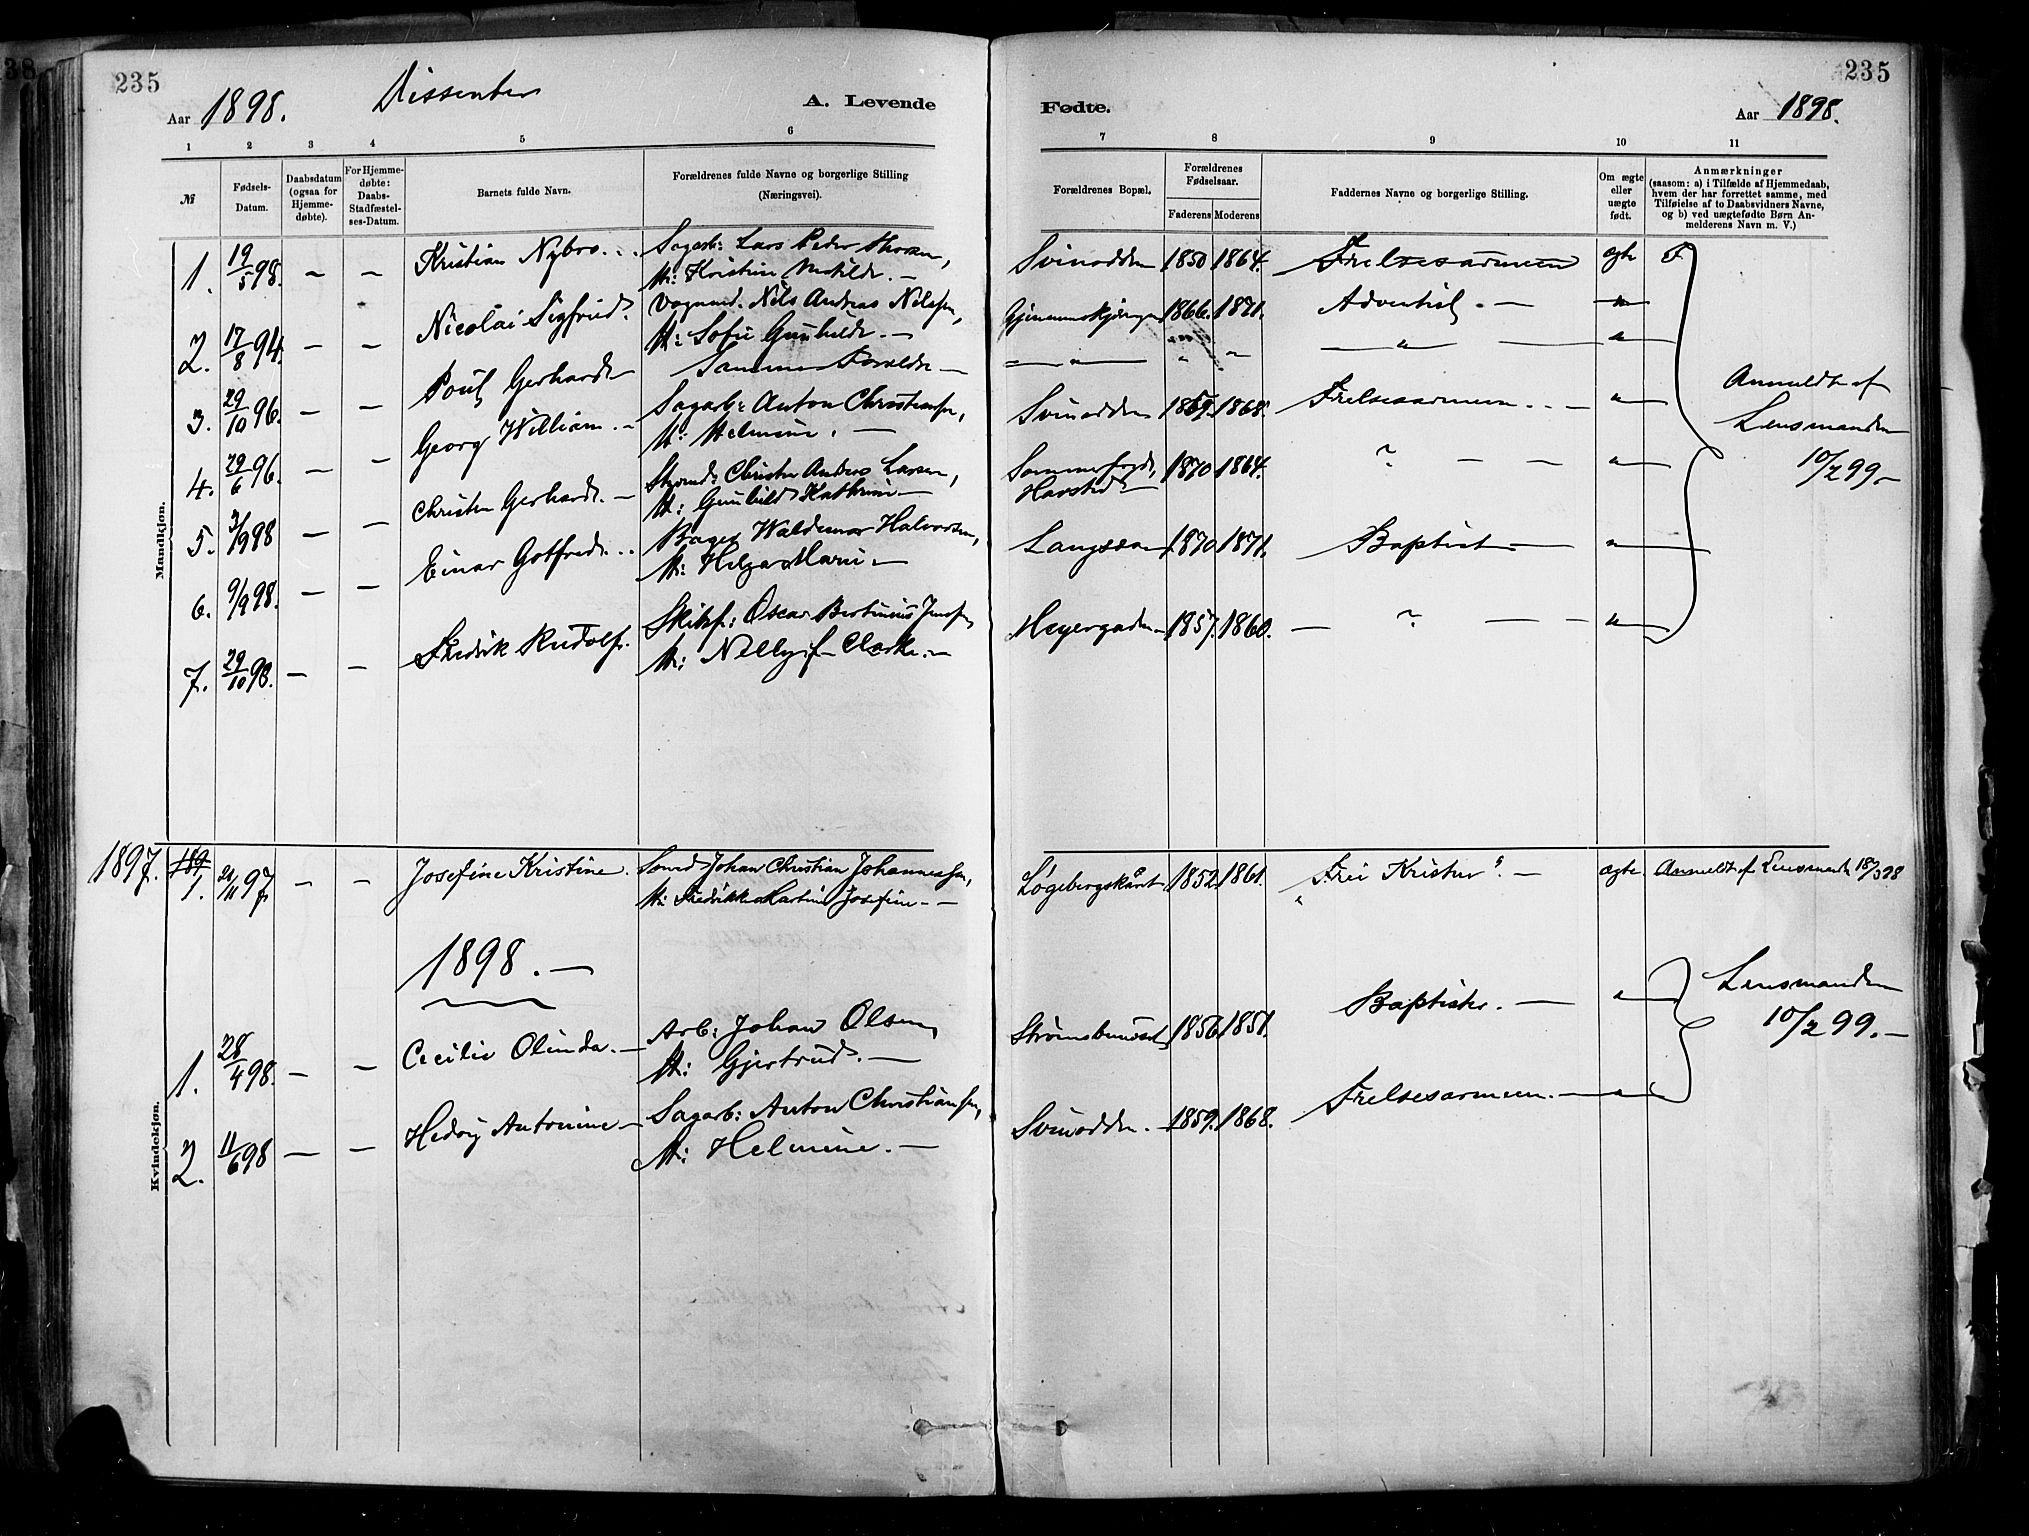 235
Aar 1898.
Dissenter
A. Levende
1 2 3 4 5 6
№
Fødsels-
Datum.
Daabsdatum
(ogsaa for
Hjemme-
døbte).
For Hjemme-
døbte:
Daabs-
Stadfæstel-
ses-Datum.
Barnets fulde Navn.
Forældrenes fulde Navne og borgerlige Stilling
(Næringsvei).
Mandkjøn.
1. 19/5 98. — — Kristian Nybro Sagarb: Lars Peder
H: Kristine Matilde. —
2. 17/8 94. — — Nicolai Sigfried. Vognmd. Nils Andreas Nilsen,
H: Sofie Gunhilde. —
3. 29/10 96. — — Poul Gerhard Samme Forældre —
4. 29/6 96. — — Georg William. — Sagarb: Anton Christiansen,
H: Helmine. —
5. 3/9 98 — — Christen Gerhard. — Christen Anders Larsen,
H: Gunhild Kathrine —
6. 9/9 98. — — Einar Gotfred. Bager Waldemar Halvorsen,
H: Helga Marie —
7. 29/10 98. — — Fredrik Rudolf. Skibsf: Oscar Bertinius Jensen,
H: Nelly f. Clarke. —
1897.
Kvindekjøn.
189
1. 24/11 97 — — Josefine Kristine. Johan Christian Johannessen,
H: Fredrikke Martine Josefine —
1898. —
1. 28/4 98. — — Cecilie Olinda. — Arb: Johan Olsen,
H: Gjertrud. —
2. 11/6 98 — — Hedvig Antonine — Sagarb: Anton Christiansen,
H: Helmine. —
235
Fødte.
Aar 1898.
7 8 9 10 11
Forældrenes Bopæl.
Forældrenes
Fødselsaar.
Faderens Moderens
Faddernes Navne og borgerlige Stilling.
Om ægte
eller
uægte
født.
Anmærkninger
(saasom: a) i Tilfælde af Hjemmedaab,
hvem der har forrettet samme, med
Tilføielse af to Daabsvidners Navne,
og b) ved uægtefødte Børn An-
melderens Navn m. V.)
Svinodden 1850 1864. Frelsesarmeen ægte
1866. 1871. Adventist. — "
— " — " " — " — "
Svinodden 1859. 1868. Frelsesarmeen. — "
1870 1864. ? — — "
Langsæ 1870 1871. Baptist — "
Meyergaden 1857. 1860. — ? — — "
Anmeldt af
Lensmanden
10/2 99. —
Løgebergskåret 1852. 1861. "Frie Kristne". — ægte. Anmeldt af Lensmanden 18/3 98
Strømsbuneset 1856. 1851. Baptister. — "
Svinodden. — 1859. 1868. Frelsesarmeen. — "
Lensmanden
10/2 99. —